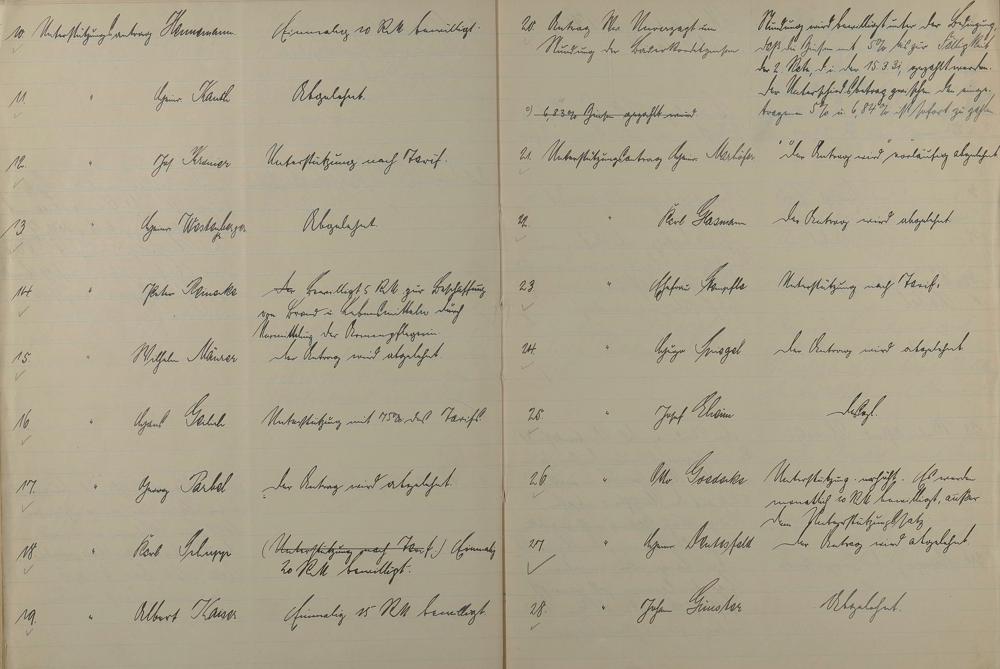 10. Unterstützungsantrag Hannemann Einmalig 10 RM bewilligt.
11. " Heinr. Kanth Abgelehnt.
12. " Jos Kramer Unterstützung nach Tarif.
13 " Heinr Westenberger Abgelehnt
14 " Peter Bewilligt 5 RM zur Beschaffung
von Brand u Lebensmitteln durch
Vermittlung der Armenpflegerin
15. " Wilhelm Mäurer der Antrag wird abgelehnt
16 " Hans Unterstützung mit 75% des Tarifs
17. " Georg Partel der Antrag wird abgelehnt.
18 " Karl Schupp (Unterstützung nach Tarif.) Einmalig
20 RM bewilligt.
19. " Albert Kaiser Einmalig 15 RM bewilligt
20. Antrag um
Stundung der
Stundung wird bewilligt unter der Bedingung,
daß die Zinsen mit 5% bis zur Fälligkeit
der 2. Rate, d. i. den 15.3.31, gezahlt werden.
Der Unterschiedsbetrag zwischen den einge
tragenen 5% u 6,84% ist sofort zu zahlen
6,83% Zinsen gezahlt wird
21. Unterstützungsantrag Heinr. der Antrag wird vorläufig abgelehnt
22. " Karl Gasmann der Antrag wird abgelehnt
23 " Ehefrau Unterstützung nach Tarif.
24. " Hugo Spiegel der Antrag wird abgelehnt
25. " Josef desgl.
26 " Otto Goedecke Unterstützung erhöht. Es werden
monatlich 10 RM bewilligt, außer
dem Unterstützungssatz
27 " Heinr der Antrag wird abgelehnt
28. " Joh. Günster Abgelehnt.